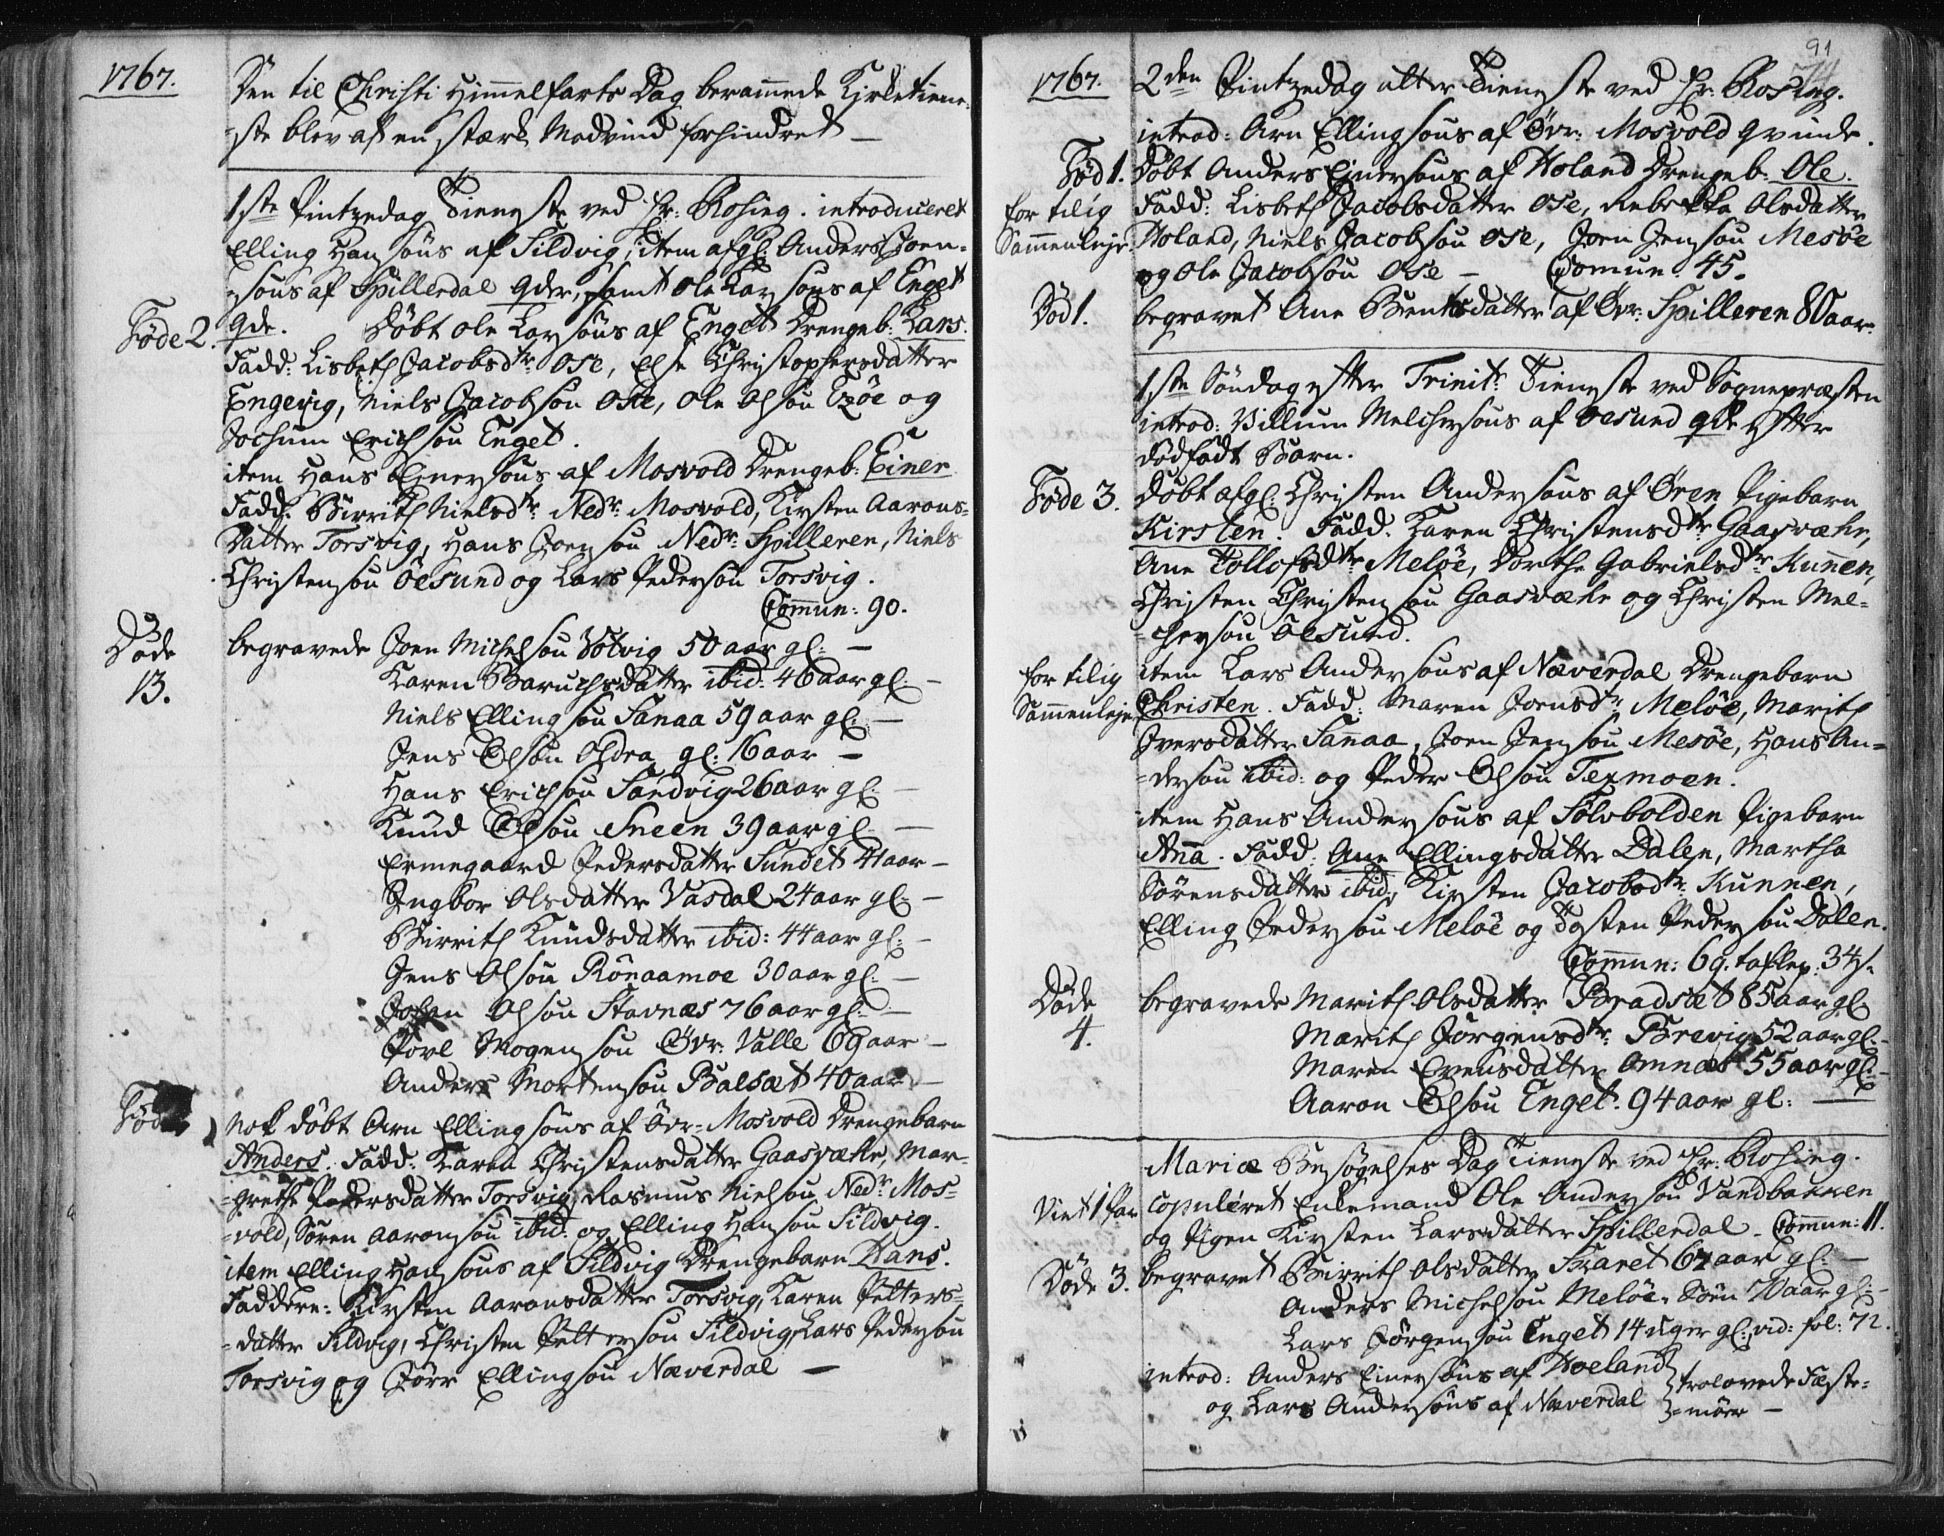 1767.
Den til Christi Himmelfarts Dag berammede Kirketiene-
ste blev af en stærk Modvind forhindret —
1ste Pintzedag Tieneste ved Hr: Rosing. introduceret
Elling Hansøns af Sildvig, item afgl: Anders Joen-
søns af Spillerdal qdr, samt Ole Larsøns af Enget
Føde 2. qde. Døbt Ole Larsøns af Enget Drengeb: Lars.
Fadd: Lisbeth Jacobsdtr: Ose, Else Christophersdatter
Engevig, Niels Jacobsøn Ose, Ole Olsøn Ezøe og
Jochum Erichsøn Enget.
item Hans Einersøns af Mosvold Drengeb: Einer
Fadd. Birrith Nielsdtr: Nedr: Mosvold, Kirsten Aarons-
Datter Torsvig, Hans Joensøn Nedr: Spilleren, Niels
Christensøn Oesund og Lars Pedersøn Torsvig.
Commun: 90.
Døde
13.
begravede Joen Michelsøn Votvig 50 aar gl: —
Karen Baruchsdatter ibid: 46 aar gl: —
Niels Ellingsøn Sanaa 59 aar gl: —
Jens Olsøn Osdra gl: 16 aar —
Hans Erichsøn Sandvig 26 aar gl: —
Knud Olsøn Sneen 39 aar gl —
Ermegaard Pedersdatter Sundet 41 aar —
Ingbor Olsdatter Vasdal 24 aar gl: —
Birrith Knudsdatter ibid: 44 aar gl: —
Jens Olsøn Rønaamoe 30 aar gl: —
Johen Olsøn Stavnæs 76 aar gl: —
Povl Mogensøn Øvr: Valle 69 aar —
Anders Mortensøn Balsæt 40 aar —
Fød
Nok døbt Arn Ellingsøns af Övr- Mosvold Drengebarn
Anders. Fadd: Karen Christensdatter Gaasvæhr, Mar-
-grethe Pedersdatter Torsvig, Rasmus Nielsøn Nedr Mos-
-vold, Søren Aaronsøn ibid: og Elling Hansøn Sildvig.
item Elling Hansøns af Sildvig Drengebarn Hans.
Faddere: Kirsten Aaronsdatter Torsvig, Karen Pelters-
-datter Sildvig, Christen Peltersøn Sildvig, Lars Pedersøn
Torsvig og Jørr Ellingsøn Næverdal —
91
1767. 2den Pintzedag atter Tieneste ved Hr: Rosing.
introd: Arn Ellingsøns af Øvr: Mosvold qvinde.
Fød 1. Døbt Anders Einersøns af Holand Drengeb: Ole.
for tilig Fadd: Lisbeth Jacobsdatter Ose, Rebekka Olsdatter
Sammenleje. Holand, Niels Jacobsøn Ose, Joen Jensøn Mesøe
og Ole Jacobsøn Ose — Comun: 45.
Død 1. begravet Ane Bentsdatter af Øvr: Spilleren 80 aar.
1ste Søndag efter Trinit: Tieneste ved Sognepræsten
introd: Villum Melchersøns af Oesund qde efter
dødfødt Barn.
Føde 3. døbt afgl: Christen Andersøns af Ören Pigebarn
Kirsten. Fadd. Karen Christensdtr Gaasvæhr,
Ane Tollofsdtr Meløe, Dorthe Gabrielsdtr Kunnen,
Christen Christensøn Gaasvæhr og Christen Mel-
-chersøn Oesund.
for tilig item Lars Andersøns af Næverdal Drengebarn
Sammenleje Christen. Fadd: Maren Jonsdtr: Meløe, Marith
Iversdatter Sannaa, Joen Jensøn Mesøe, Hans An-
-dersøn ibid: og Peder Olsøn Texmoen.
item Hans Andersøns af Sølvbolden Pigebarn
Anna. Fadd: Ane Ellingsdatter Dalen, Martha
Sørensdatter ibid:, Kirsten Jacobsdtr: Kunnen,
Elling Pedersøn Meløe og Tosten Pedersøn Dalen.
Commun: 69. taflep: 34s.
Døde
4.
begravede Marith Olsdatter Bradsæt 85 aar gl
Marith Jørgensdtr: Brevig 52 aar gl: —
Maren Evensdatter Omnæs 55 aar gl: —
Aaron Olsøn Enget. 94 aar gl: —
Mariæ Besøgelses Dag Tieneste ved Hr: Rosing.
Viet 1 Par copuleret Enkemand Ole Andersøn Vandbakken
og Pigen Kirsten Larsdatter Spillerdal. Commun: 11.
Døde 3. begravet Birrith Olsdatter Franet 67 aar gl: —
Anders Michelsøn Meløe. Søn 70 aar gl: —
Lars Jørgensøn Enget 14 uger gl: vid: fol: 72.
introd: Anders Einersøns af Hoeland } trolovede Fæste-
og Lars Andersøns af Næverdal } -møer —